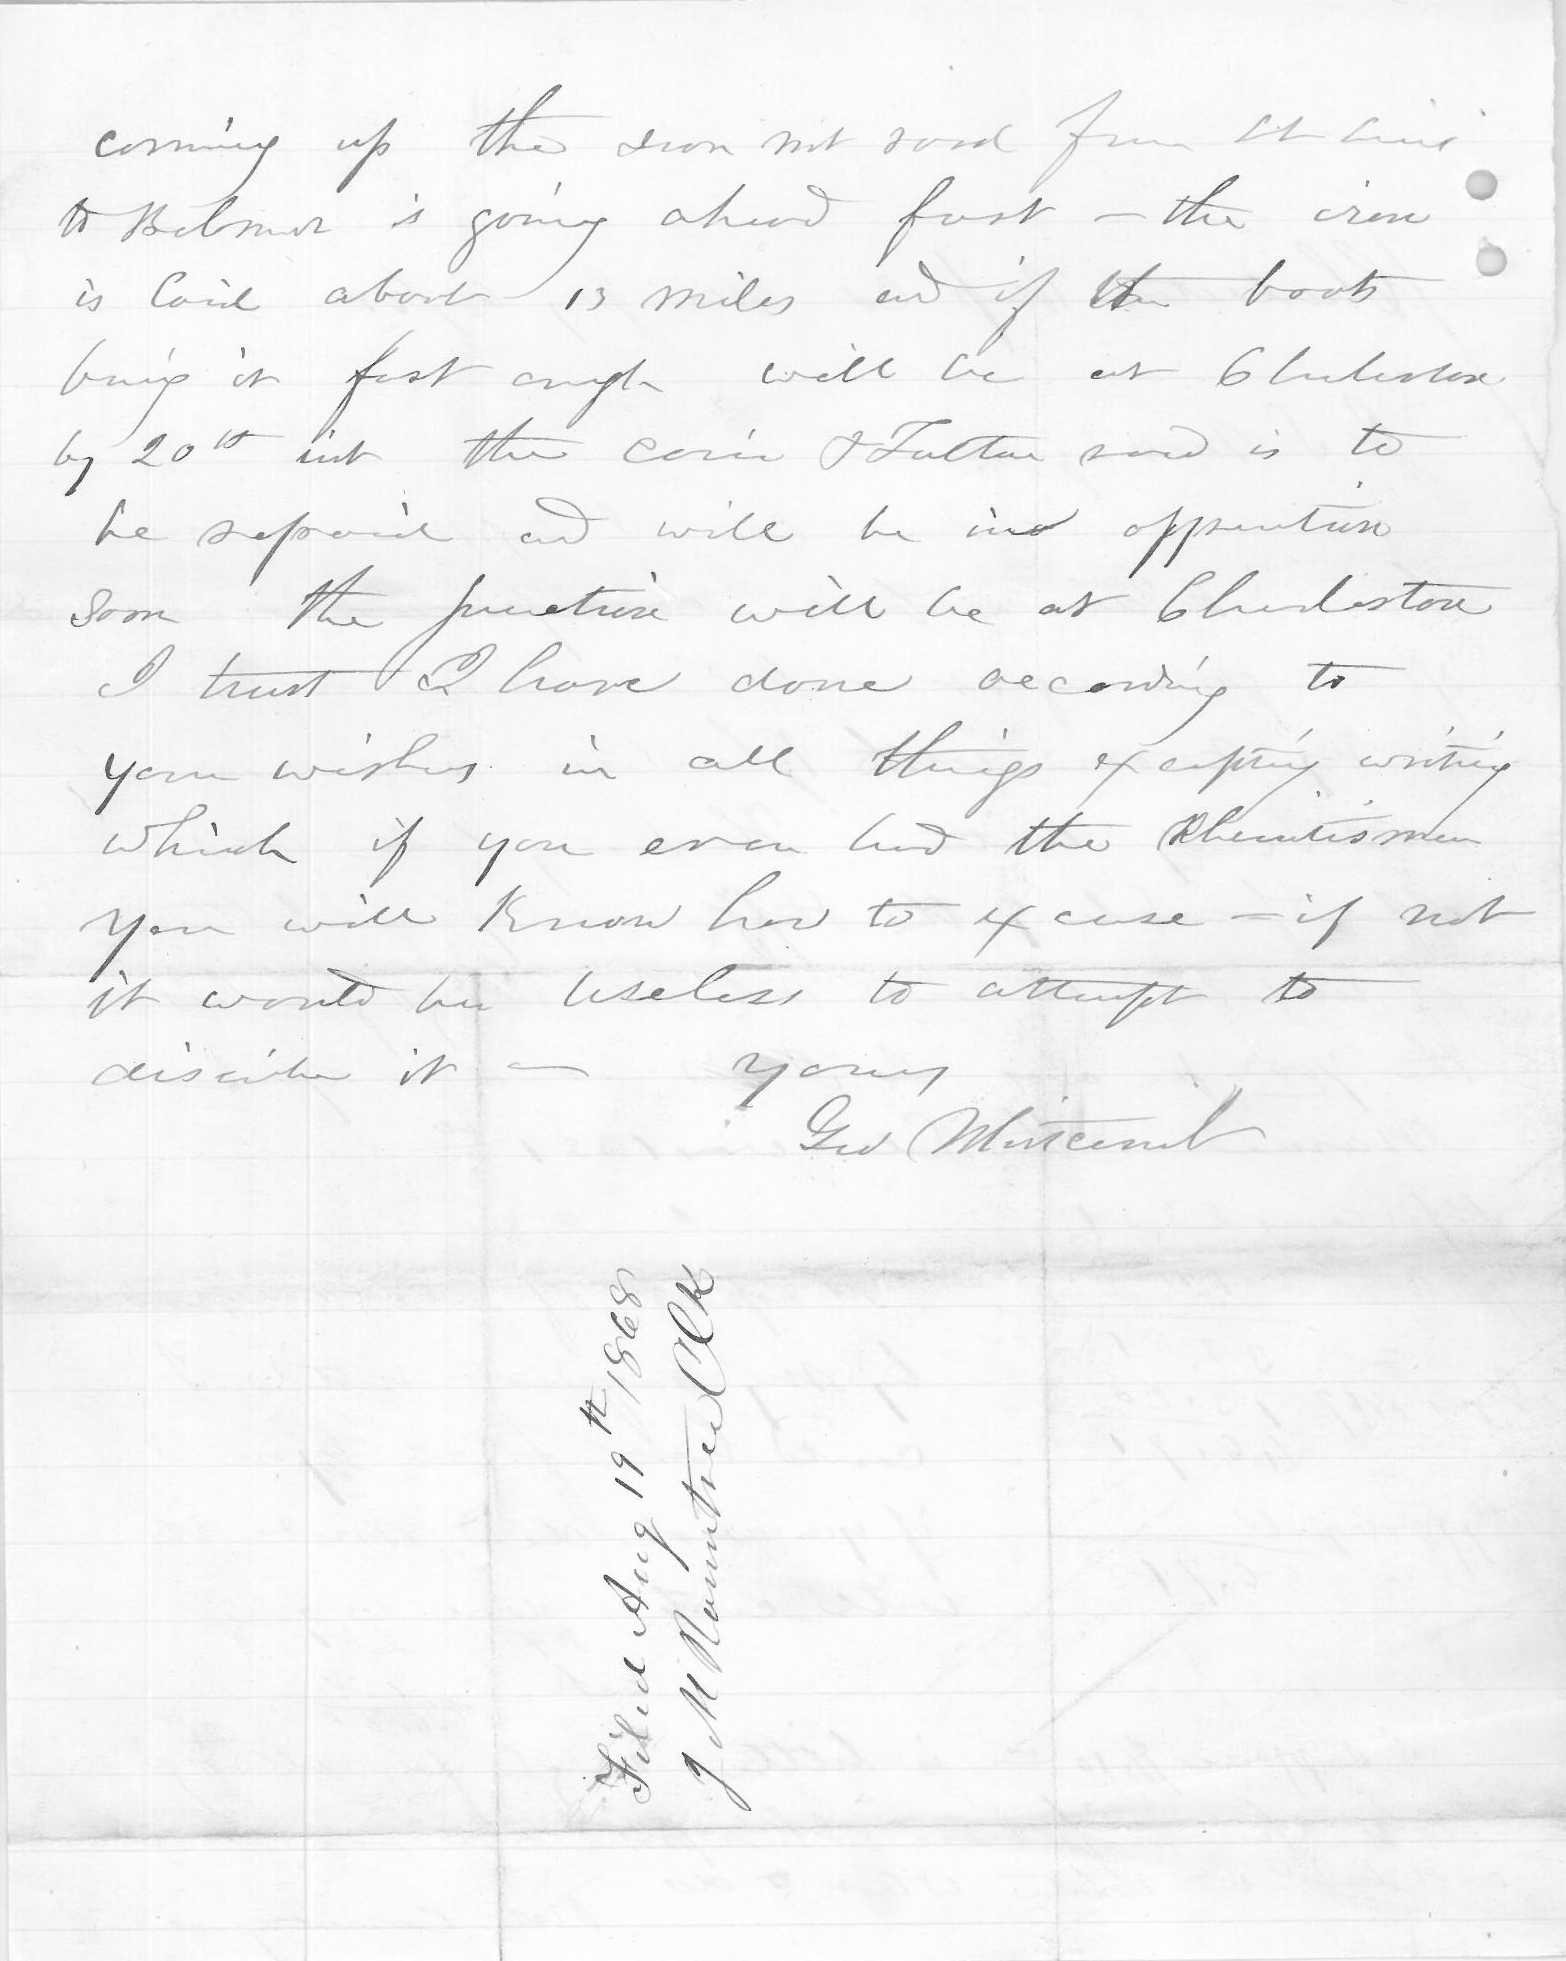 coming up the Iron Mt road from St Louis
to Belmont is going ahead fast – the iron
is laid about 13 miles and if the boats
bring it fast enough will be at Charleston
by 20th inst the Cairo & Fulton road is to
be repaired and will be in opperation
soon the junction will be at Charleston
I trust I have done according to
your wishes in all things excepting writing
which if you ever had the Rheumitismen
you will Know how to excuse – if not
it would be useless to attempt to
discribe it – yours
Geo
Filed Aug 19th 1868
J M Rountree Clk